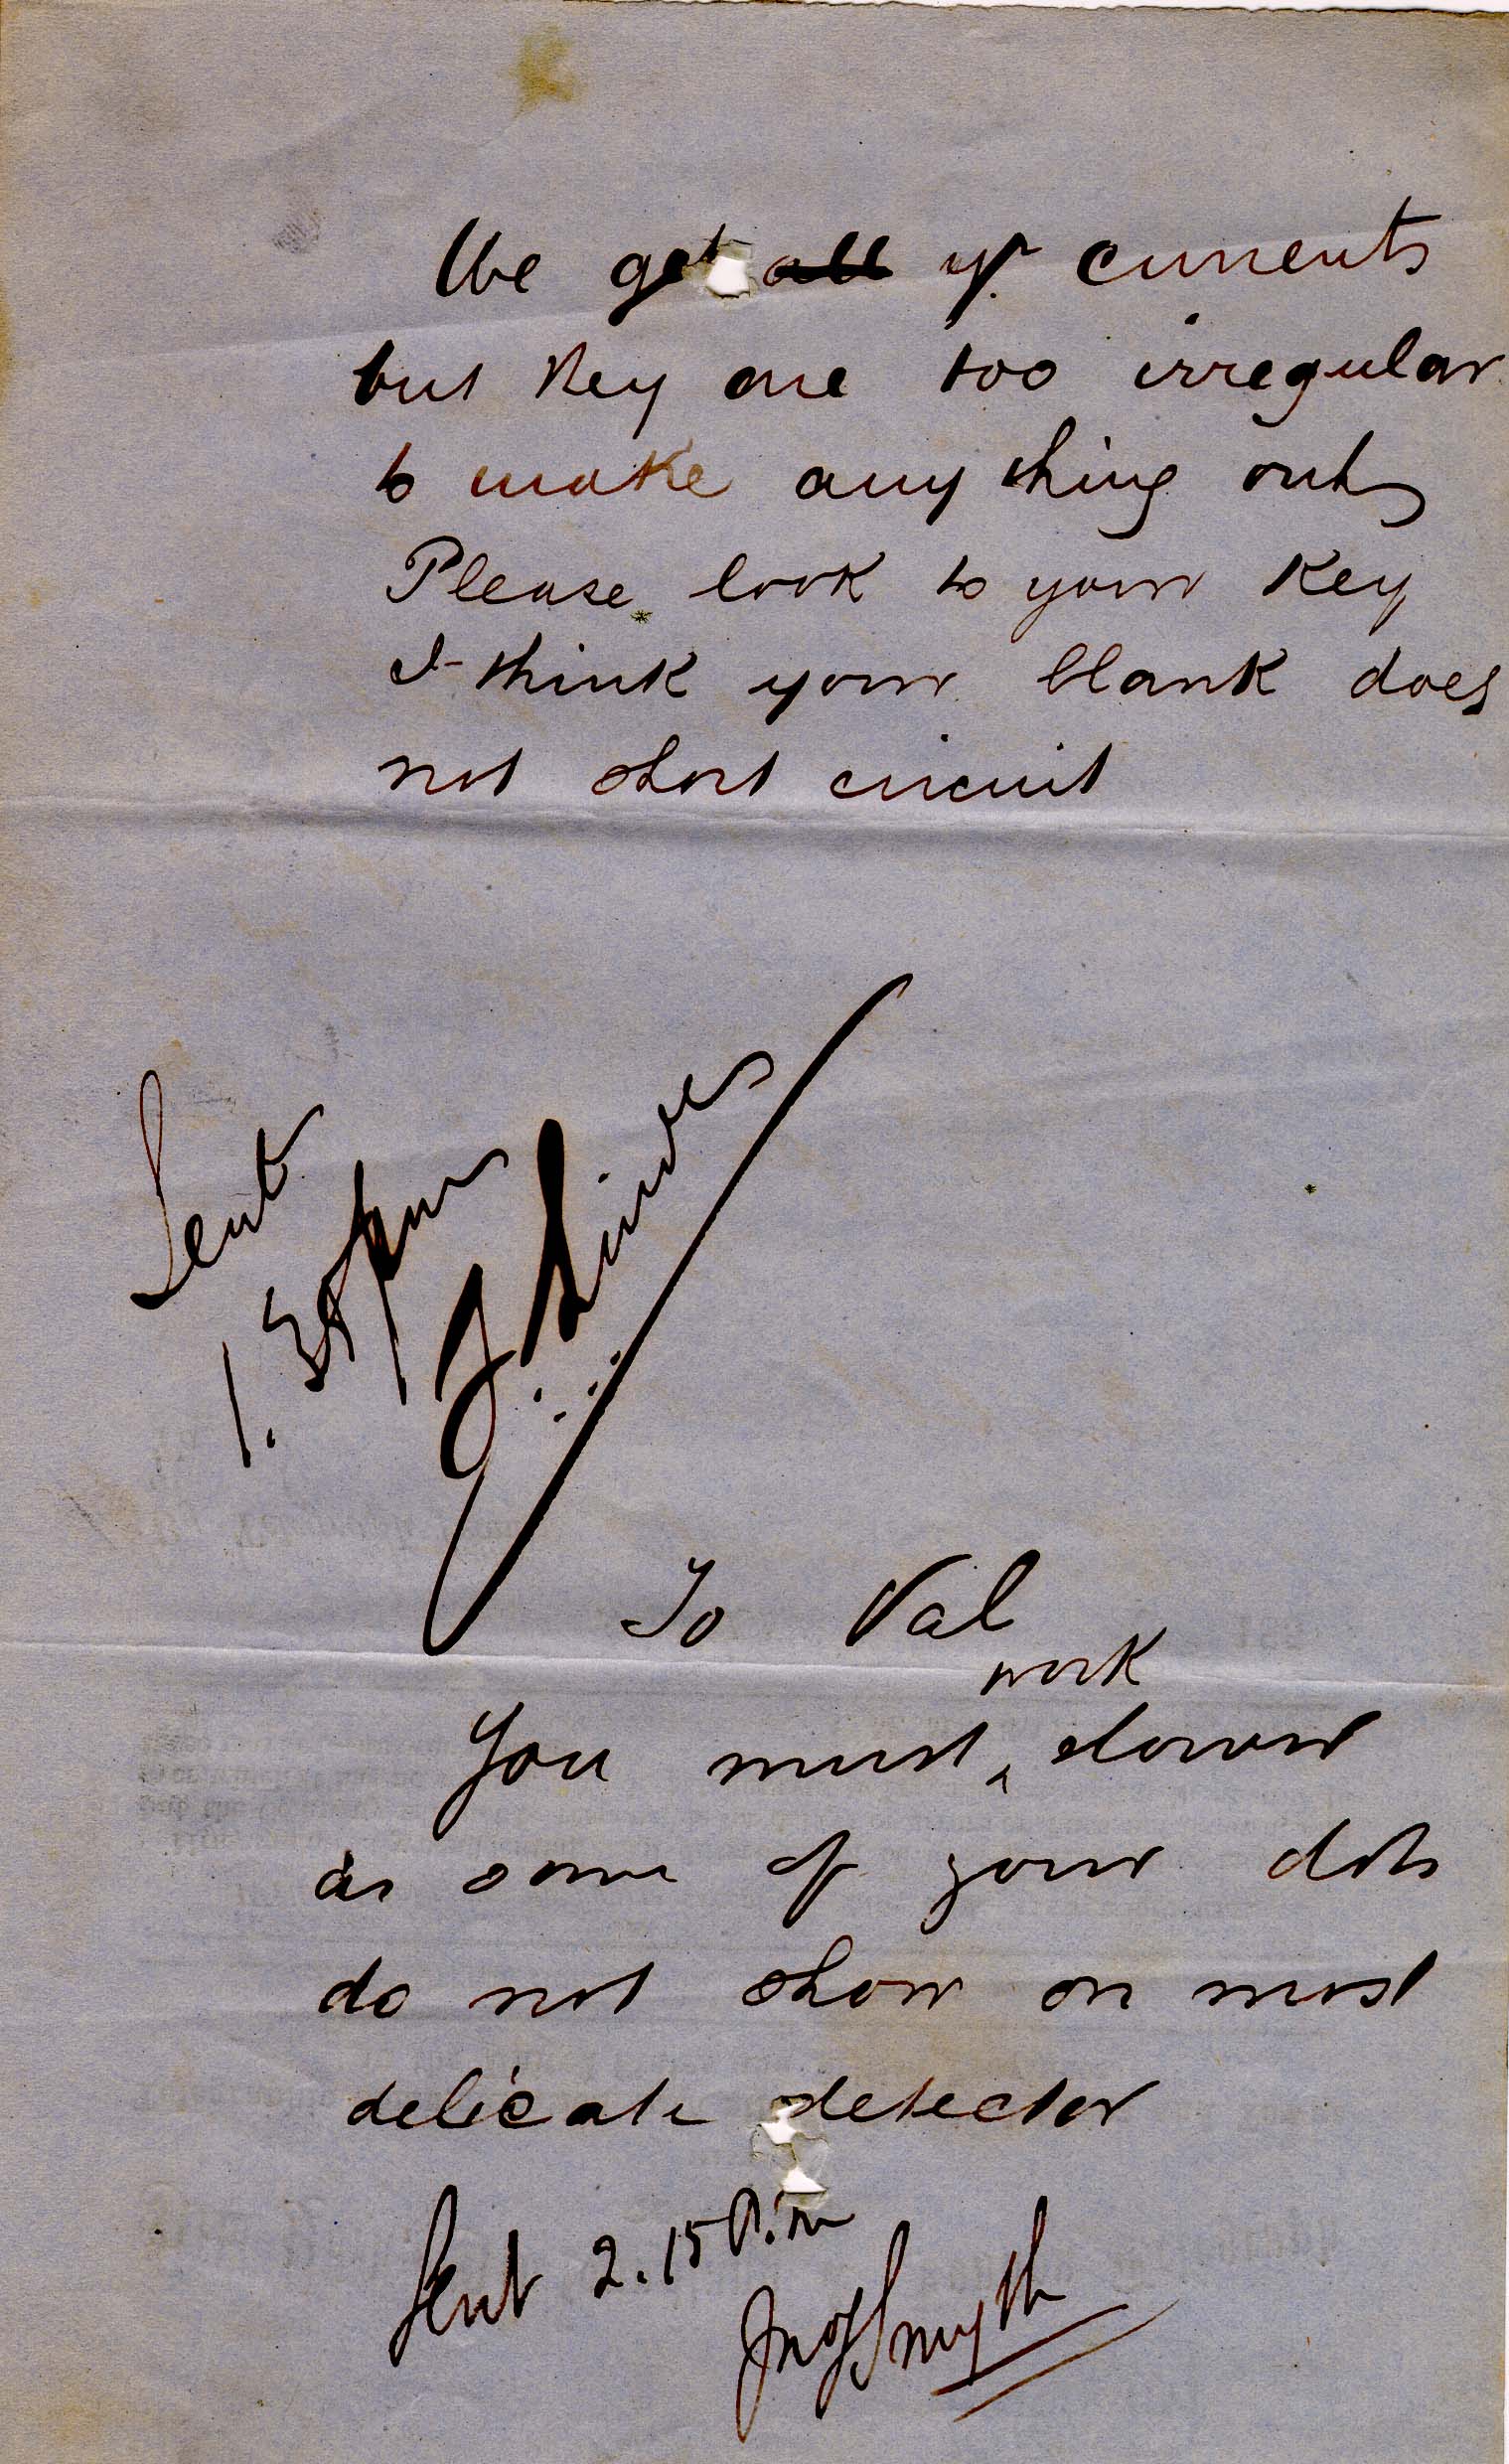 We get all yr currents
but they are too irregular
to make any thing out
Please look to your key
I think your blank does
not short circuit
Sent
1.30 pm
To Val
You must work slower
as some of your dots
do not show on most
delicate detector
Sent 2.15 P.m
Jno Smyth